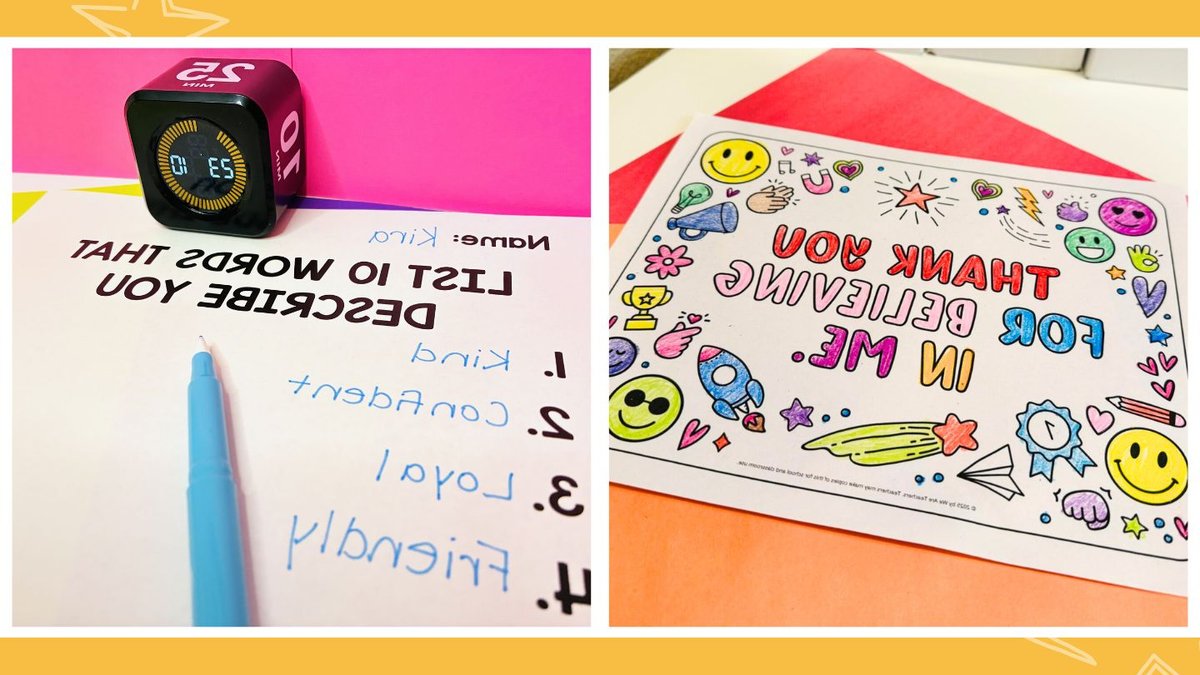 25
MIN
10
MIN
23 10
Name: Kira
LIST 10 WORDS THAT
DESCRIBE YOU
1. Kind
2. Confident
3. Loyal
4. Friendly
THANK YOU
FOR BELIEVING
IN ME.
1
© 2025 by We Are Teachers. Teachers may make copies of this for school and classroom use.